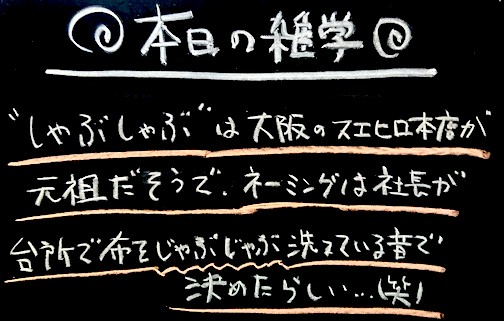 本日の雑学
"しゃぶしゃぶ"は大阪のスエヒロ本店が
元祖だそうで、ネーミングは社長が
台所で布をじゃぶじゃぶ洗えている音で
決めたらしい…(笑)